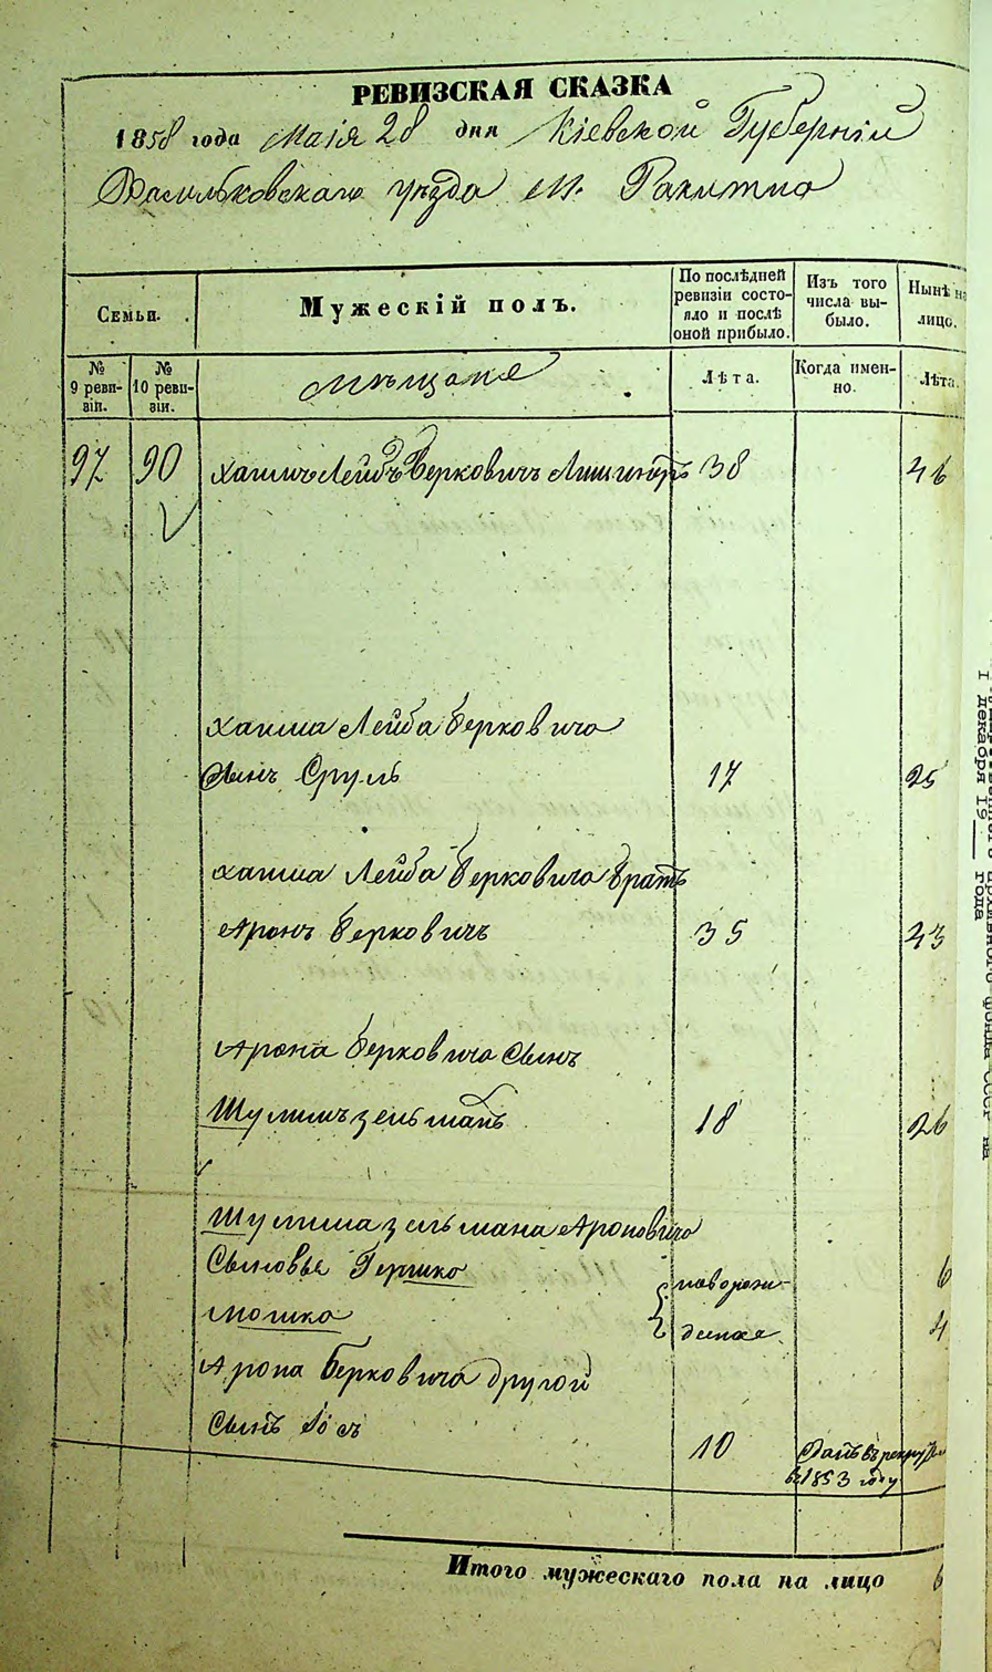 РЕВИЗСКАЯ СКАЗКА
1858 года Маія 28 дня Кіевской Губерніи
Васильковскаго уѣзда М. Ракитно
Семьи.
Мужескій полъ.
По послѣдней ревизіи состояло и послѣ оной прибыло.
Изъ того числа выбыло.
Нынѣ на лицо.
№ 9 ревизіи.
№ 10 ревизіи.
Мѣщане
Лѣта.
Когда именно.
Лѣта.
97 90 Хаимъ Лейбъ Берковичъ 38 46
Хаима Лейба Берковича
Сынъ Сруль 17 25
Хаима Лейба Берковича братъ
Аронъ Берковичъ 35 43
Арона Берковича Сынъ
Шулимъ зельманъ 18 26
Шулима зельмана Ароновича
Сыновья Гершко новорож- 6
Мошко денные 4
Арона Берковича другой
Сынъ Іосъ 10 Данъ въ рекруты
въ 1853 году
Итого мужескаго пола на лицо 6
1 декабря 19___ года
архивного фонда СССР на